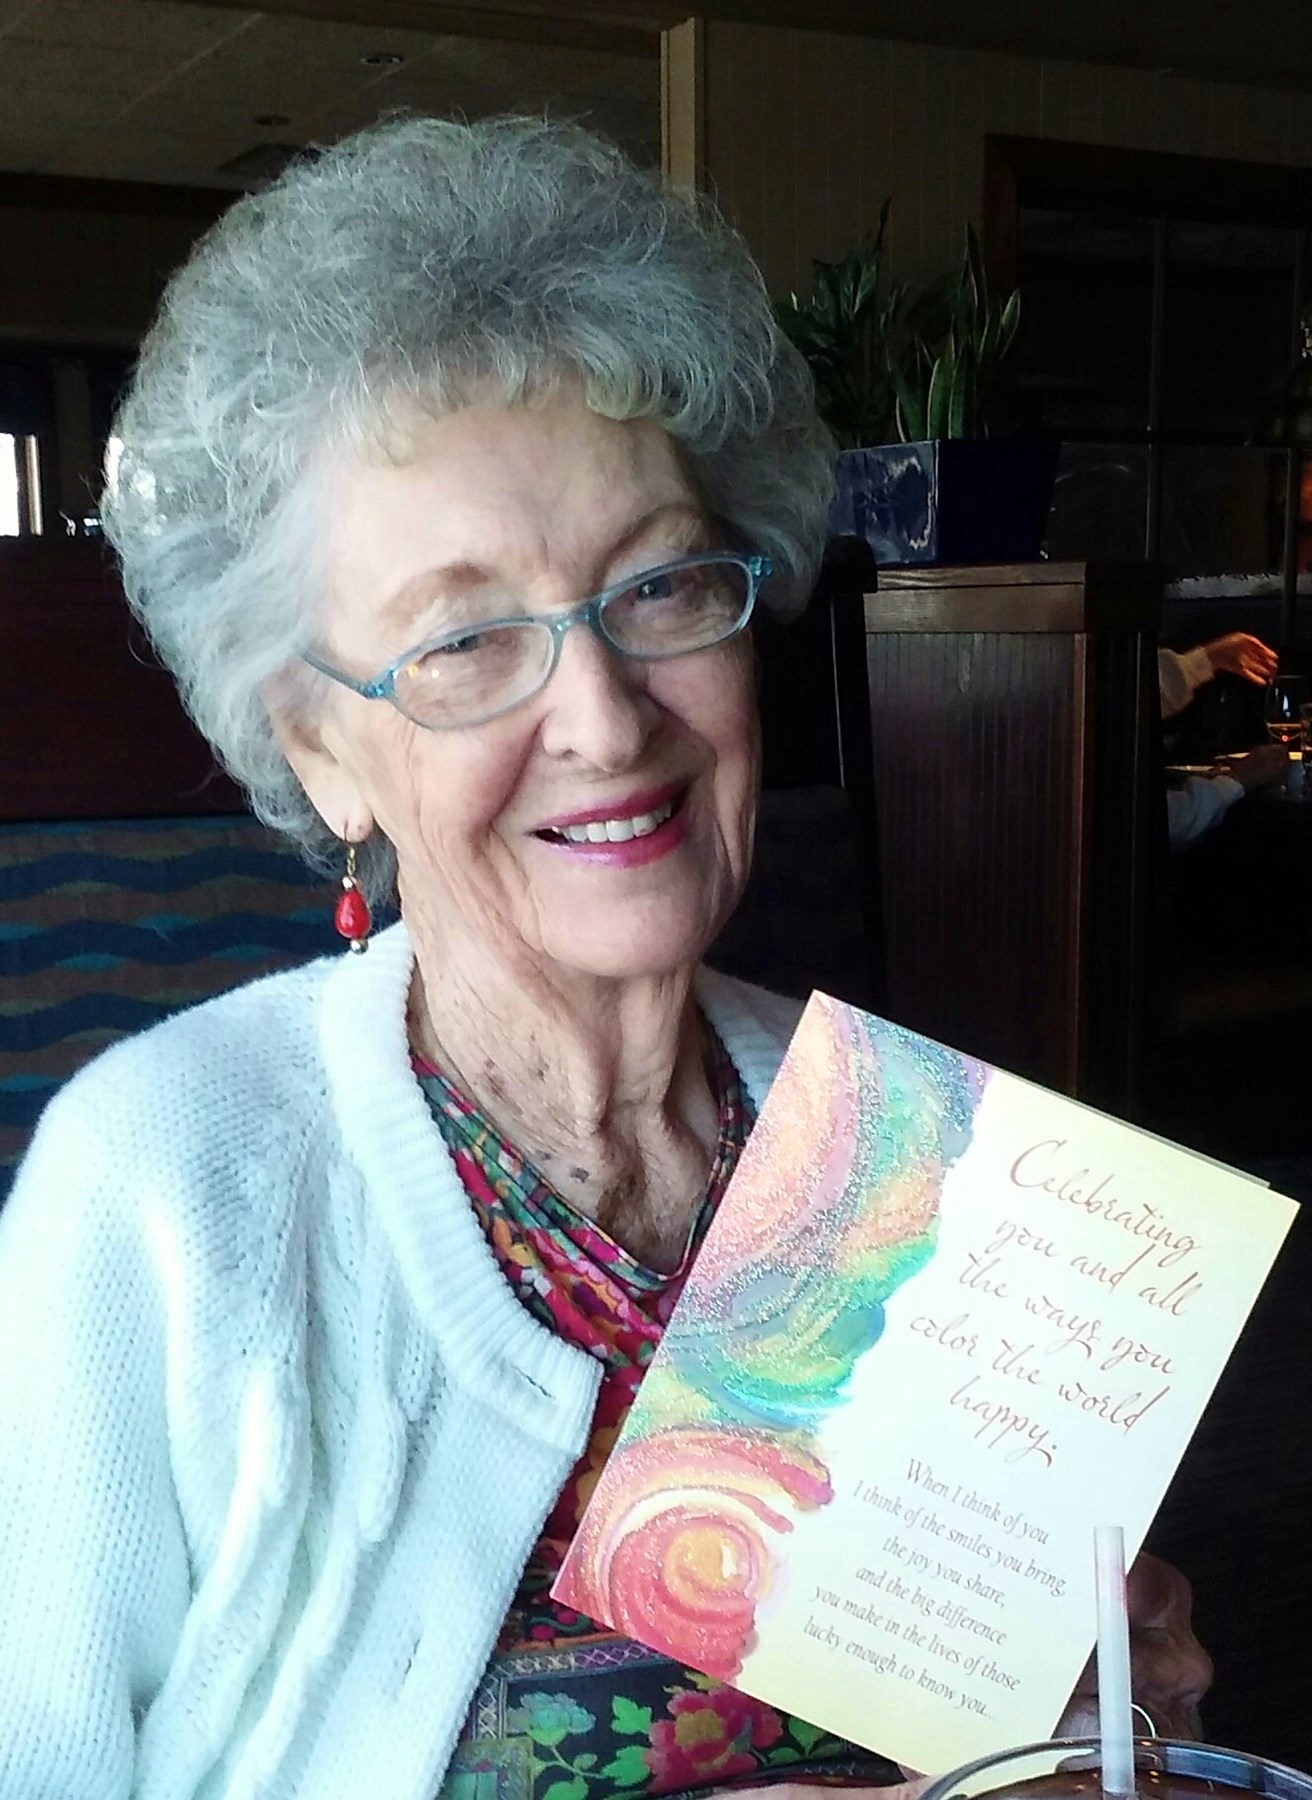 Celebrating
you and all
the ways you
color the world
happy.
When I think of you
I think of the smiles you bring,
the joy you share,
and the big difference
you make in the lives of those
lucky enough to know you...